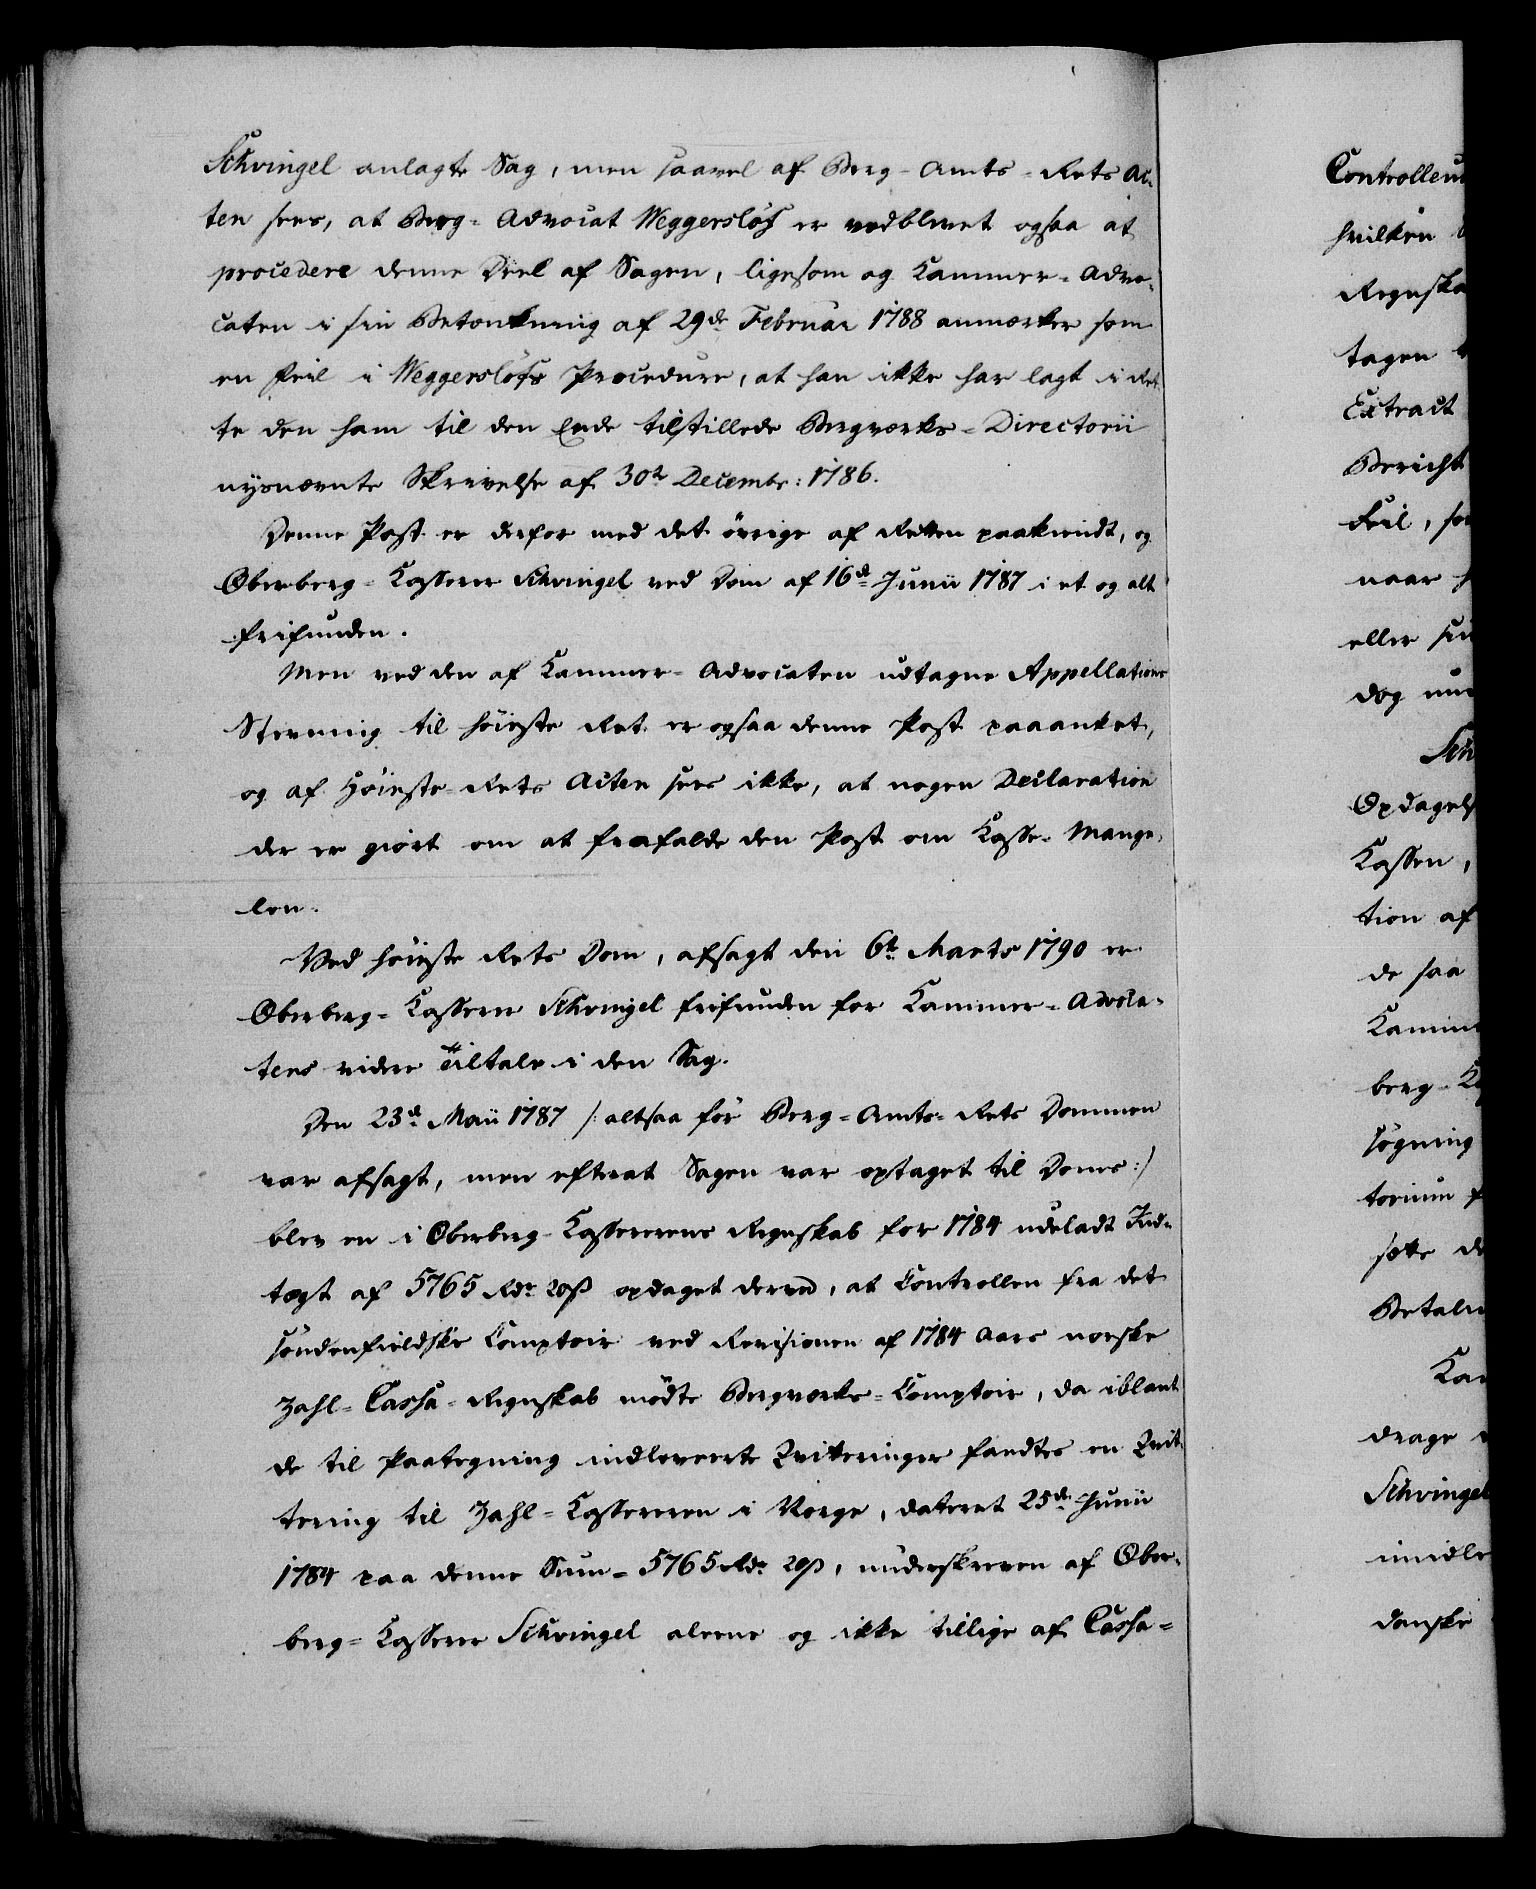 Schvingel anlagte Sag, men saavel af Berg-Amts-Rets Ac-
ten sees, at Berg-Advocat Weggersløf er vedblivet ogsaa at
procedere denne Deel af Sagen, ligesom og Kammer-Advo-
caten i sin Betænkning af 29de Februar 1788 anmærker som
en Feil i Weggersløfs Procedure, at han ikke har lagt i Ret-
te den ham til den Ende tilstillede Bergværks-Directorii
nysnævnte Skrivelse af 30te Decembr: 1786.
Denne Post er derfor med det øvrige af Retten paakiendt, og
Oberberg-Casserer Schvingel ved Dom af 16de Junii 1787 i et og alt
frifunden.
Men ved den af Kammer-Advocaten udtagne Appellations
Stevning til høieste Ret er ogsaa denne Post paaanket,
og af Høieste-Rets Acten sees ikke, at nogen Declaration
der er giort om at frafalde den Post om Casse-Mange-
len.
Ved høieste Rets Dom, afsagt den 6te Marts 1790 er
Oberberg-Casserer Schvingel frifunden for Kammer-Advoca-
tens videre Tiltale i den Sag.
Den 23de Maii 1787 /: altsaa før Berg-Amts-Rets Dommen
var afsagt, men efterat Sagen var optaget til Doms :/
blev en i Oberberg-Cassererens Regnskab for 1784 udeladt Ind-
tægt af 5765 Rdr 20 ß opdaget derved, at Controllen fra det
søndenfieldske Comptoir ved Revisionen af 1784 Aars norske
Zahl-Cassa-Regnskab mødte Bergværks-Comptoir, da iblant
de til Paategning indleverte Qvitteringer fandtes en Qvit-
tering til Zahl-Cassereren i Norge, dateret 25de Junii
1784 paa denne Sum 5765 Rdr 20 ß, underskreven af Ober-
berg-Casserer Schvingel alene og ikke tillige af Cassa-
Controlleur
hvilken
Regnska
tagen
Extract
Bericht
Feil, so
naar
eller
dog
Sch
Opdagels
Cassen,
tion af
de saa
Kamme
berg-Ca
søgning
torium
sætte de
Betalin
Ka
drage
Schvingel
imidle
danske